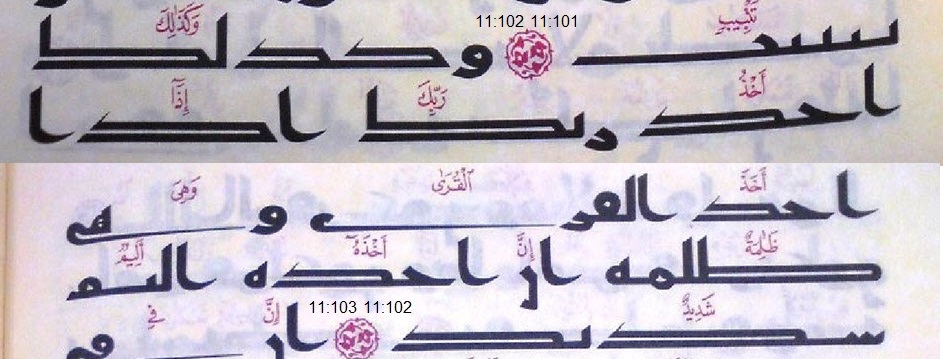 11:102 11:101
تَتْبِيبٍ وَكَذَٰلِكَ
ٮٮٮٮٮ وكدلك
أَخْذُ رَبِّكَ إِذَآ
احد رٮك ادا
أَخَذَ ٱلْقُرَىٰ وَهِىَ
احد الڡرى وهى
ظَٰلِمَةٌ إِنَّ أَخْذَهُۥٓ أَلِيمٌ
طلمه ان احده الٮم
شَدِيدٌ 11:103 11:102 إِنَّ فِى
سدٮد ان ڡى